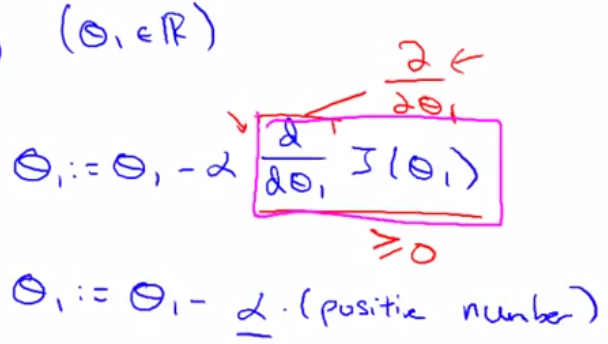 (θ₁ ∈ ℝ)
∂/∂θ₁ ←
θ₁ := θ₁ - α d/dθ₁ J(θ₁)
≥ 0
θ₁ := θ₁ - α · (positive number)